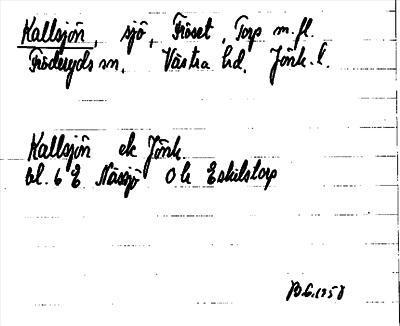 Kallsjön, sjö, Fröset, Torp m.fl.
Fröderyds sn, Västra hd, Jönk. l.
Kallsjön ek Jönk.
bl. 6 E Nässjö Ok Eskilstorp
B.G. 1958